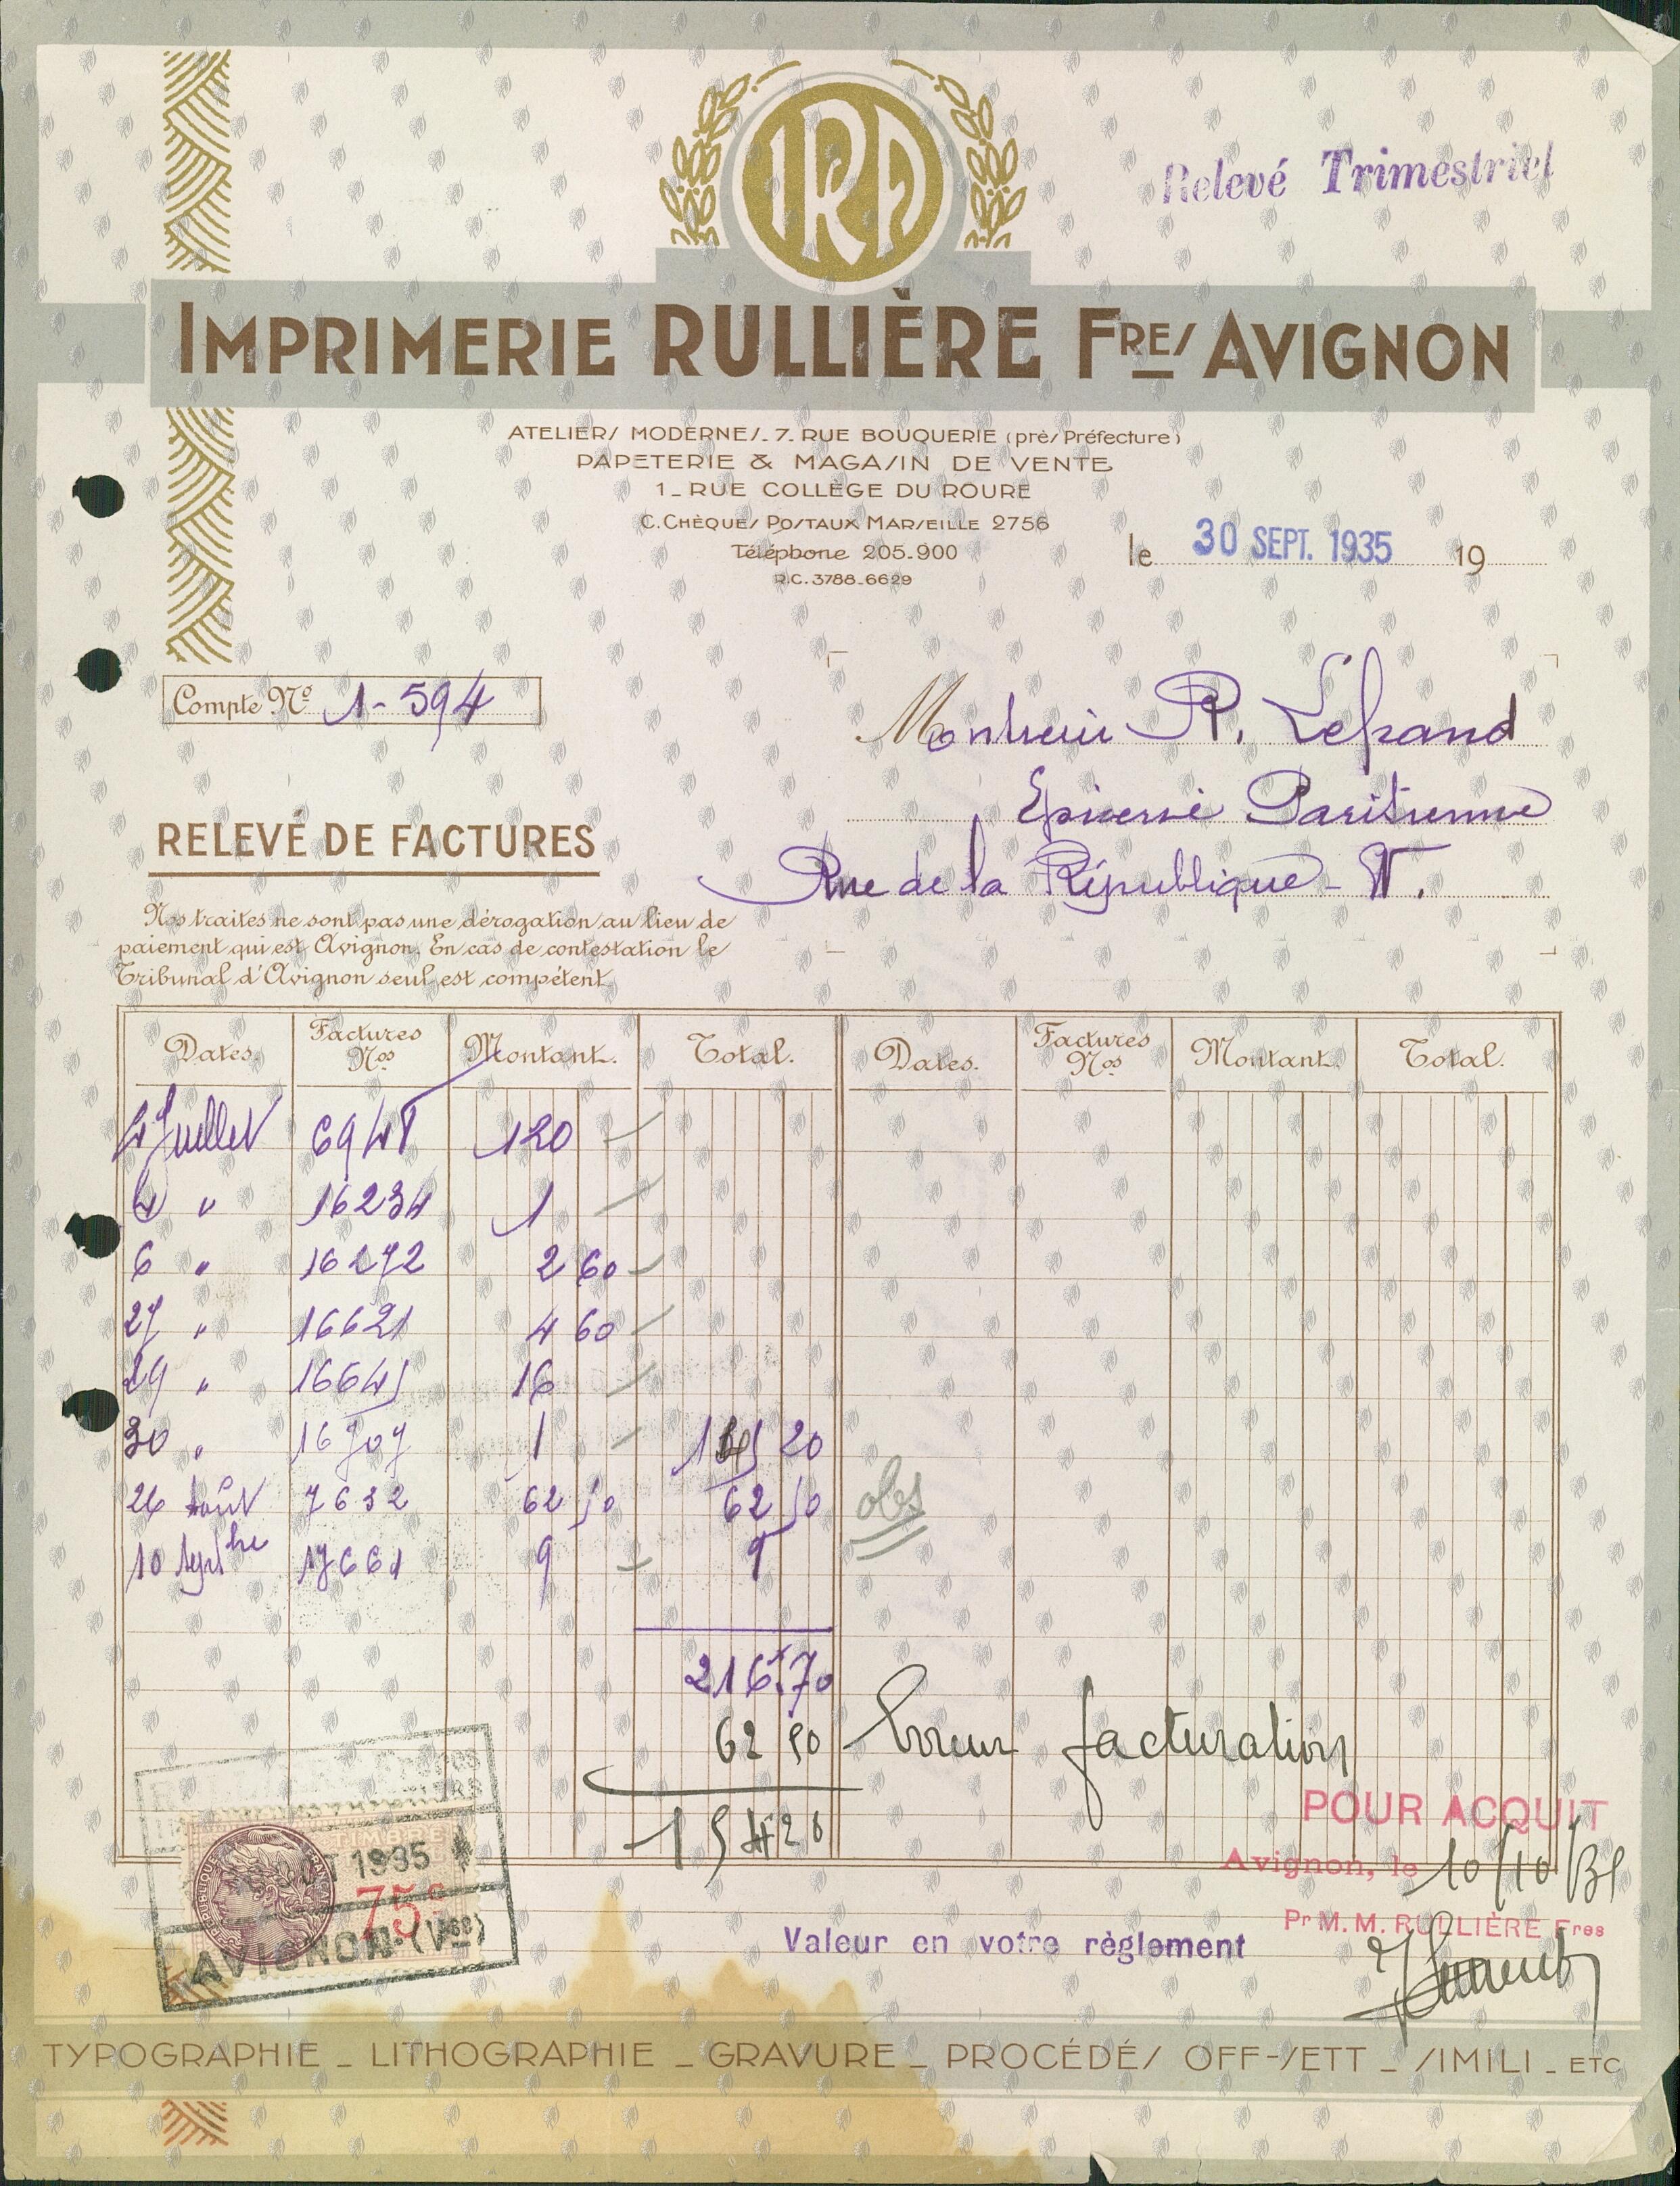 IRA
Relevé Trimestriel
IMPRIMERIE RULLIÈRE FRES AVIGNON
ATELIERS MODERNES. 7. RUE BOUQUERIE (près Préfecture)
PAPETERIE & MAGASIN DE VENTE
1_ RUE COLLÈGE DU ROURE
C. CHÈQUES POSTAUX MARSEILLE 2756
Téléphone 205.900
R.C. 3788-6629
le 30 SEPT. 1935 19
Compte No 1-594
Monsieur R. Lefrand
Epicerie Parisienne
Rue de la République
RELEVÉ DE FACTURES
Nos traites ne sont pas une dérogation au lieu de
paiement qui est Avignon. En cas de contestation le
Tribunal d'Avignon seul est compétent.
Dates. Factures Nos Montant. Total. Dates. Factures Nos Montant. Total.
4 Juillet 6948 120
4 " 16234 1
6 " 16272 2 60
27 " 16621 4 60
29 " 16645 16
30 " 16707 1 145 20
26 Août 7632 62 50 62 50
10 Septbre 17661 9 9
obs
216.70
62 50 Erreur facturation
154 20
POUR ACQUIT
Avignon, le 10/10/35
Pr M. M. RULLIÈRE Fres
Valeur en votre règlement
TIMBRE
RÉPUBLIQUE
1935
75c
AVIGNON (Vse)
TYPOGRAPHIE _ LITHOGRAPHIE _ GRAVURE _ PROCÉDÉS OFF-SETT _ SIMILI _ ETC